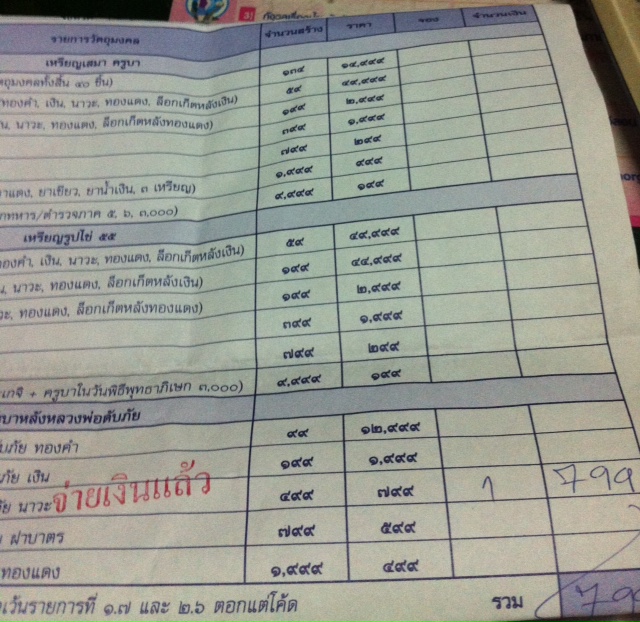 3]
รายการวัตถุมงคล จำนวนสร้าง ราคา จอง จำนวนเงิน
เหรียญเสมา ครูบา
ถุมงคลทั้งสิ้น ๔๖ ชิ้น) ๑๓๕ ๑๔,๙๙๙
ทองคำ, เงิน, นาวะ, ทองแดง, ล็อกเก็ตหลังเงิน) ๕๙ ๔๙,๙๙๙
น, นาวะ, ทองแดง, ล็อกเก็ตหลังทองแดง) ๑๙๙ ๒,๙๙๙
๓๙๙ ๑,๙๙๙
๗๙๙ ๒๙๙
าแดง, ยาเขียว, ยาน้ำเงิน, ๓ เหรียญ) ๑,๙๙๙ ๔๙๙
กทหาร/ตำรวจภาค ๕, ๖, ๓,๐๐๐) ๙,๙๙๙ ๑๙๙
เหรียญรูปไข่ ๕๕
องคำ, เงิน, นาวะ, ทองแดง, ล็อกเก็ตหลังเงิน) ๕๙ ๔๙,๙๙๙
น, นาวะ, ทองแดง, ล็อกเก็ตหลังเงิน) ๑๙๙ ๔๔,๙๙๙
วะ, ทองแดง, ล็อกเก็ตหลังทองแดง) ๑๙๙ ๒,๙๙๙
๓๙๙ ๑,๙๙๙
๗๙๙ ๒๙๙
เกจิ + ครูบาในวันพิธีพุทธาภิเษก ๓,๐๐๐) ๙,๙๙๙ ๑๙๙
บาหลังหลวงพ่อดับภัย
ับภัย ทองคำ ๙๙ ๑๒,๙๙๙
ภัย เงิน ๑๙๙ ๑,๙๙๙
ัย นาวะ จ่ายเงินแล้ว ๔๙๙ ๗๙๙ 1 799
ย ฝาบาตร ๗๙๙ ๕๙๙
ทองแดง ๑,๙๙๙ ๔๙๙
เว้นรายการที่ ๑.๗ และ ๒.๖ ตอกแต่โค้ด รวม 799